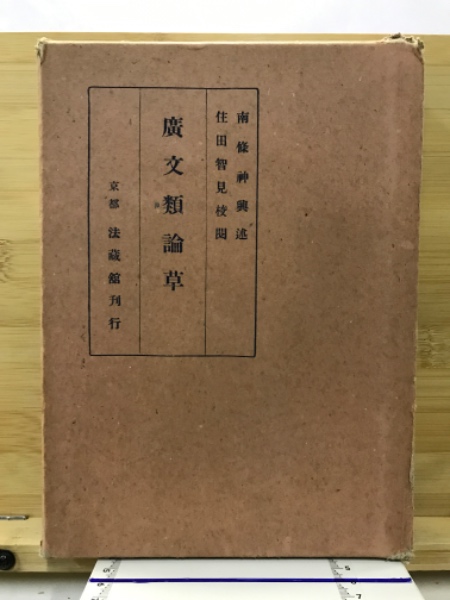 南條神興述
住田智見校閲
廣文類論草
京都 法藏館刊行